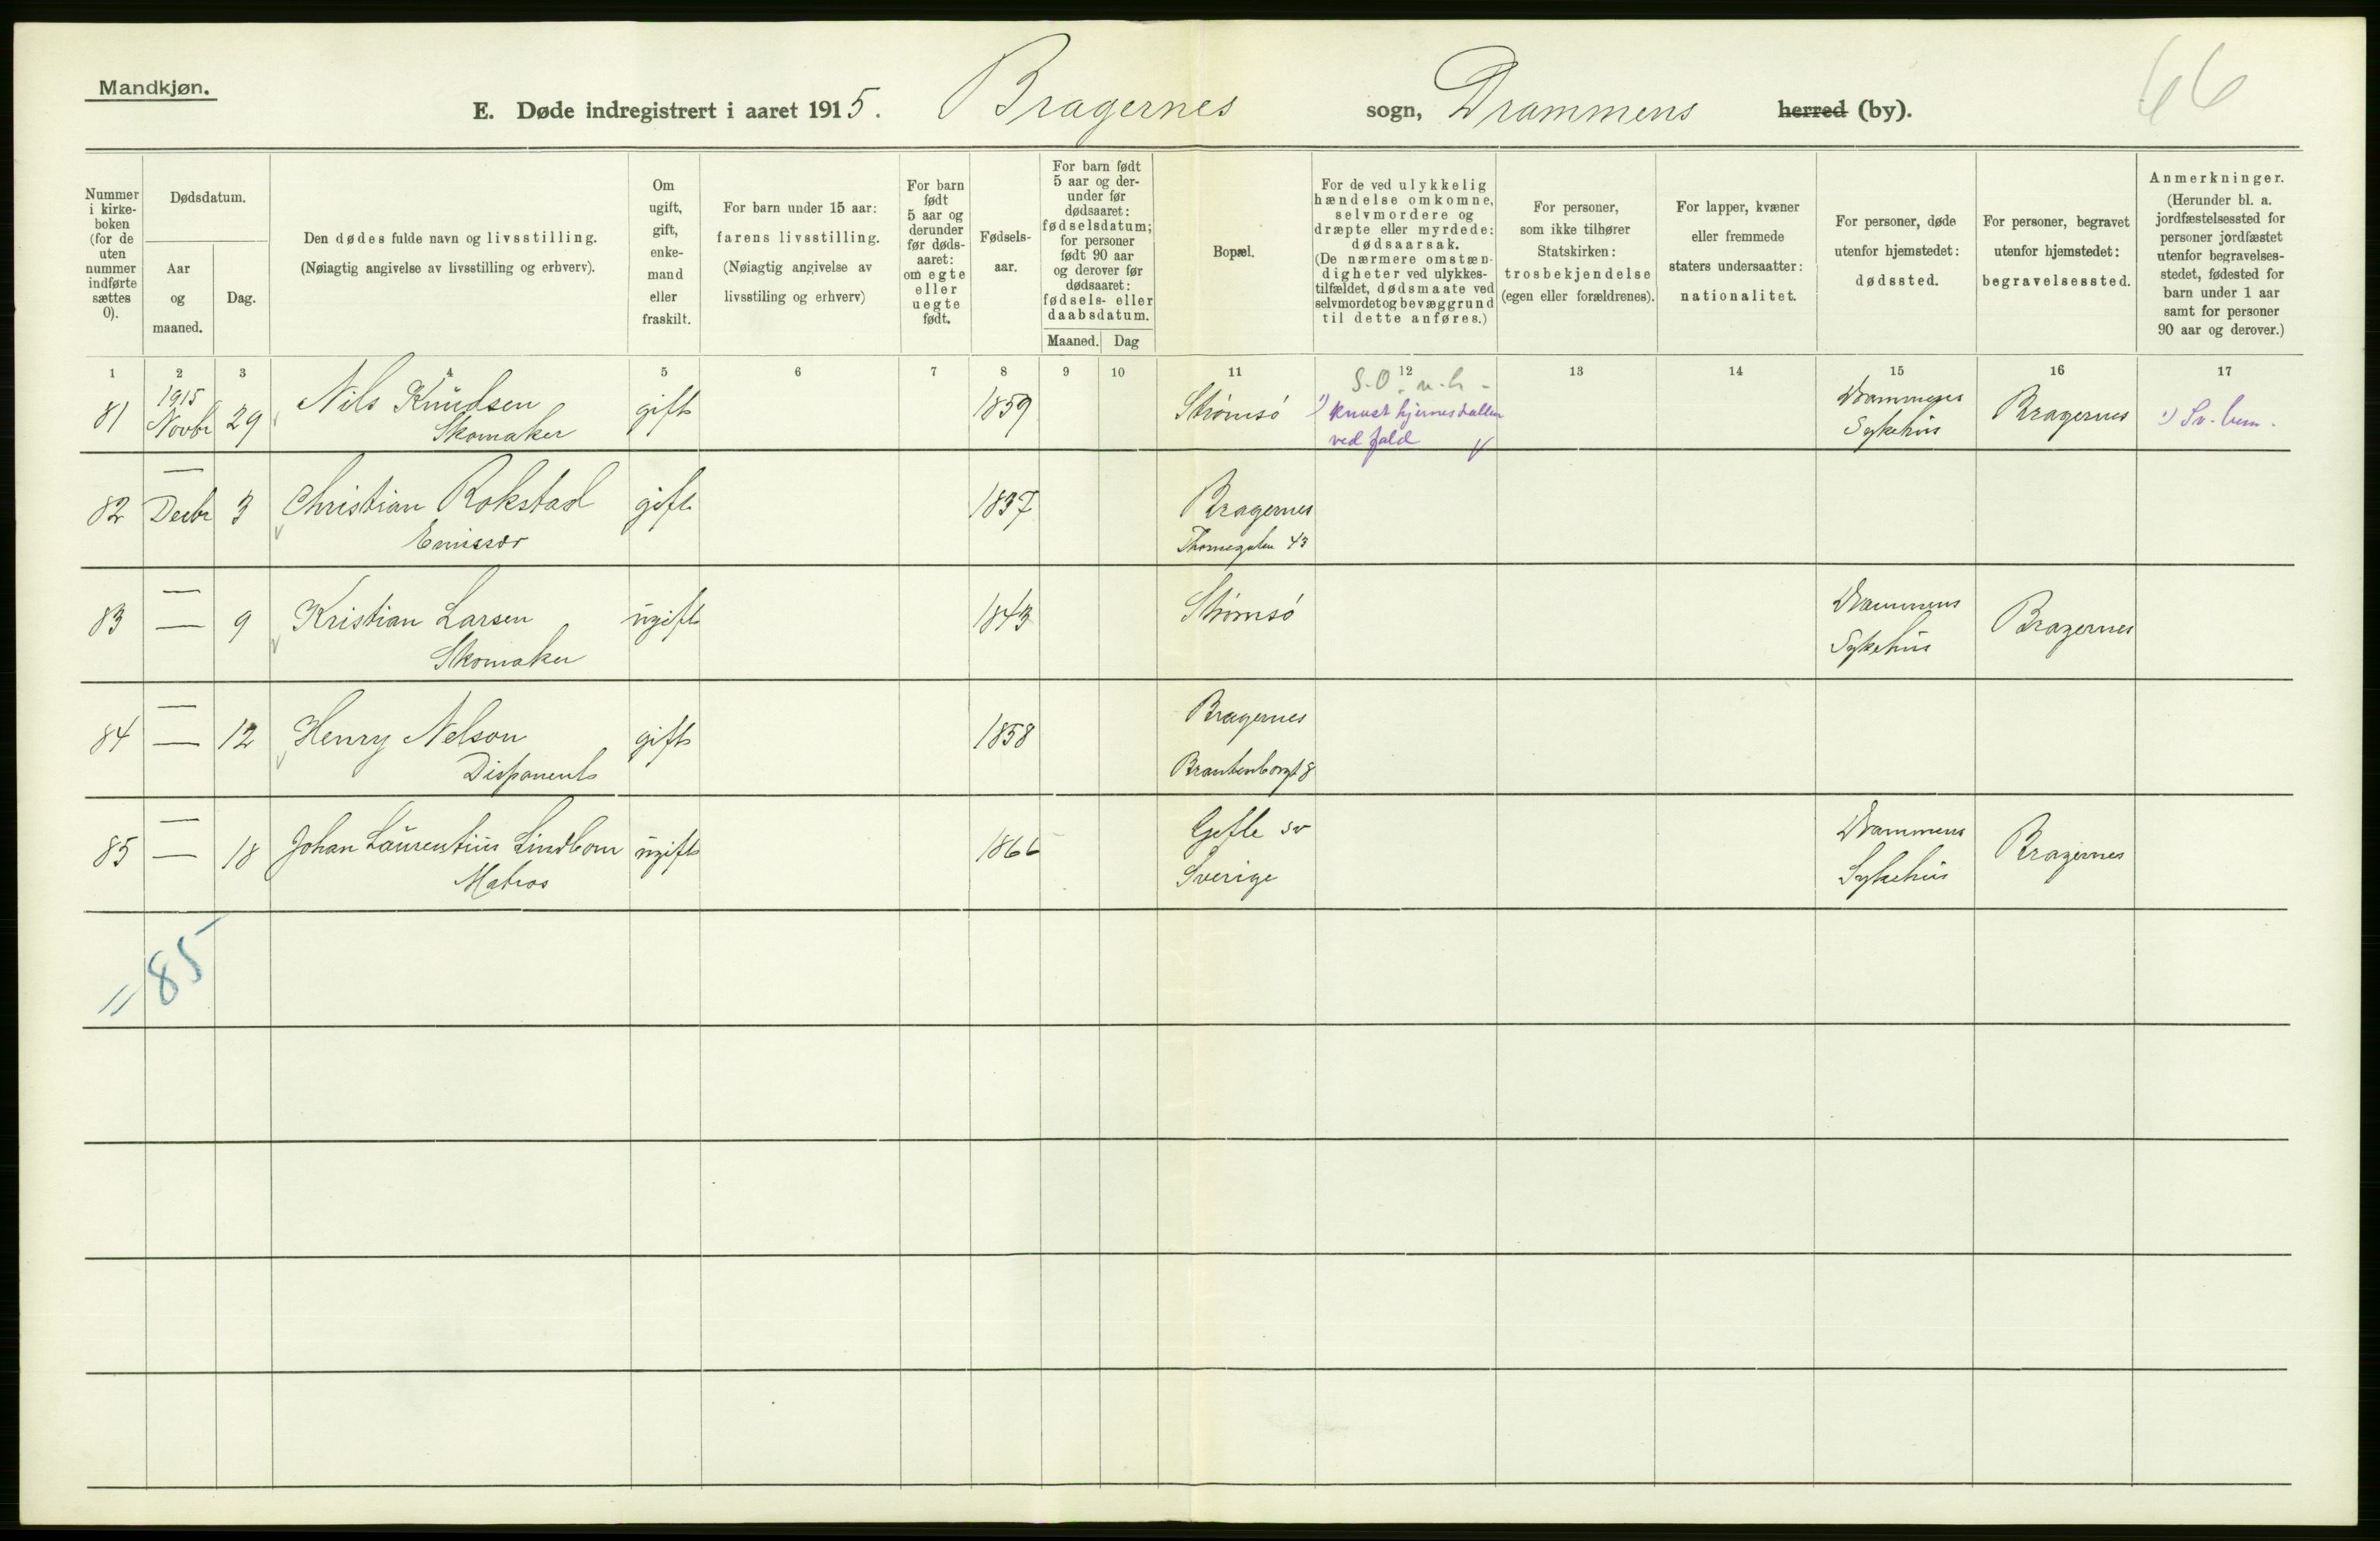 Mandkjøn.
66
E. Døde indregistrert i aaret 1915. Bragernes sogn, Drammens herred (by).
Nummer i kirke-boken (for de uten nummer indførte sættes 0).
Dødsdatum.
Aar og maaned.
Dag.
Den dødes fulde navn og livsstilling.
(Nøiagtig angivelse av livsstilling og erhverv).
Om ugift, gift, enke-mand eller fraskilt.
For barn under 15 aar:
farens livsstilling.
(Nøiagtig angivelse av
livsstiling og erhverv)
For barn født 5 aar og derunder før døds-aaret: om egte eller uegte født.
Fødsels-aar.
For barn født 5 aar og der-under før dødsaaret: fødselsdatum; for personer født 90 aar og derover før dødsaaret: fødsels- eller daabsdatum.
Maaned. Dag
Bopæl.
For de ved ulykkelig hændelse omkomne, selvmordere og dræpte eller myrdede: dødsaarsak.
(De nærmere omstæn-digheter ved ulykkes-tilfældet, dødsmaate ved selvmordet og bevæggrund til dette anføres.)
For personer, som ikke tilhører Statskirken: trosbekjendelse (egen eller forældrenes).
For lapper, kvæner eller fremmede staters undersaatter: nationalitet.
For personer, døde utenfor hjemstedet: dødssted.
For personer, begravet utenfor hjemstedet: begravelsessted.
Anmerkninger.
(Herunder bl. a. jordfæstelsessted for personer jordfæstet utenfor begravelses-stedet, fødested for barn under 1 aar samt for personer 90 aar og derover.)
1 2 3 4 5 6 7 8 9 10 11 12 13 14 15 16 17
S.O. u.h.
81 1915 Novbr 29 Nils Knudsen gift 1859 Strømsö 1) knust hjerneskallen Drammens Bragernes 1) Sv. bem.
Skomaker ved fald Sykehus
82 — Decbr 3 Christian Rokstad gift 1837 Bragernes
Emissær Thornegaten 43
83 — — 9 Kristian Larsen ugift 1843 Strømsö Drammens Bragernes
Skomaker Sykehus
84 — — 12 Henry Nelson gift 1858 Bragernes
Disponent Brantenborgt 8
85 — — 18 Johan Laurentius Lindbom ugift 1866 Gefle sv Drammens Bragernes
Matros Sverige Sykehus
= 85